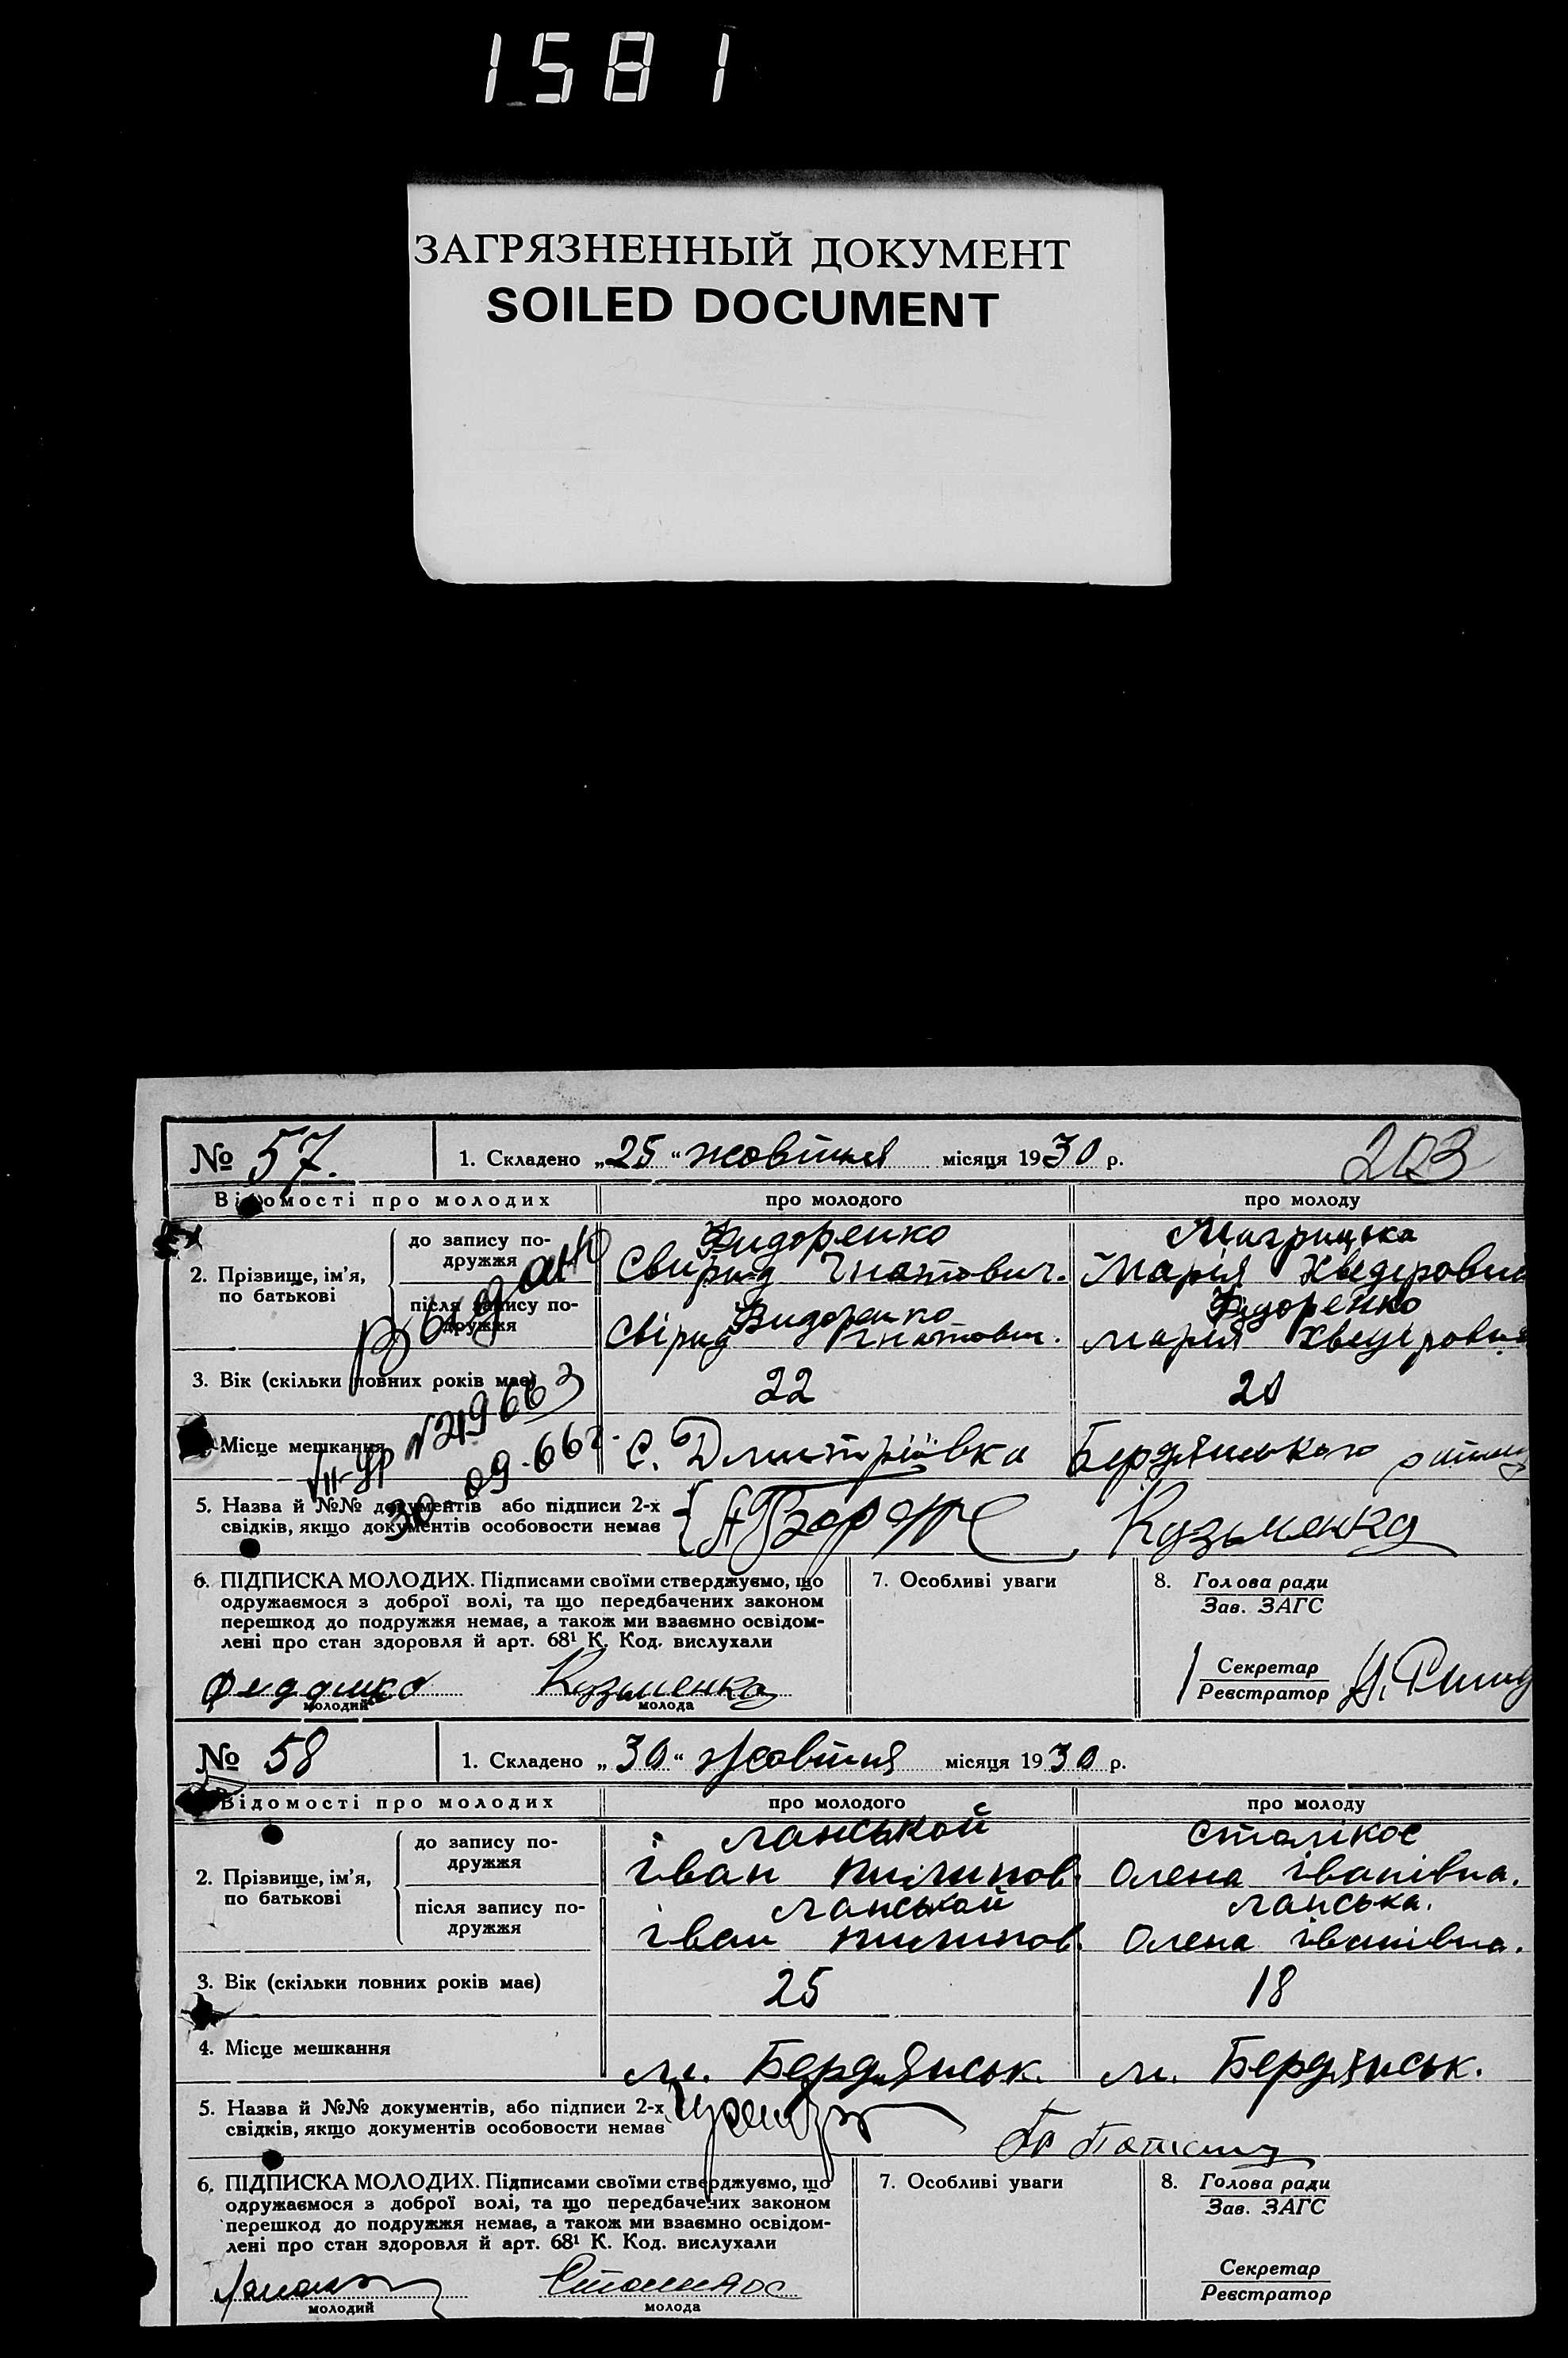 1581
ЗАГРЯЗНЕННЫЙ ДОКУМЕНТ
SOILED DOCUMENT
№ 57.
1. Складено „25“ жовтня місяця 1930 р.
203
Відомості про молодих
про молодого
про молоду
2. Прізвище, ім’я,
по батькові
до запису по-
дружжя
Свирид Гнатович.
Марія
після запису по-
дружжя
Свірид Гнатович.
Марія
3. Вік (скільки повних років має)
22
20
Місце мешкання
с. Дмитріївка
Бердянського
5. Назва й №№ документів або підписи 2-х
свідків, якщо документів особовости немає
Кузьменко
6. ПІДПИСКА МОЛОДИХ. Підписами своїми стверджуємо, що
одружаємося з доброї волі, та що передбачених законом
перешкод до подружжя немає, а також ми взаємно освідом-
лені про стан здоровля й арт. 68¹ К. Код. вислухали
Кузьменко
молодий
молода
7. Особливі уваги
8. Голова ради
Зав. ЗАГС
Секретар
Реєстратор
№ 58
1. Складено „30“ жовтня місяця 1930 р.
Відомості про молодих
про молодого
про молоду
2. Прізвище, ім’я,
по батькові
до запису по-
дружжя
Ланський
іван пилипов.
Сталікос
Олена іванівна.
після запису по-
дружжя
Ланський
іван пилипов.
Ланська.
Олена іванівна.
3. Вік (скільки повних років має)
25
18
4. Місце мешкання
м. Бердянськ.
м. Бердянськ.
5. Назва й №№ документів, або підписи 2-х
свідків, якщо документів особовости немає
6. ПІДПИСКА МОЛОДИХ. Підписами своїми стверджуємо, що
одружаємося з доброї волі, та що передбачених законом
перешкод до подружжя немає, а також ми взаємно освідом-
лені про стан здоровля й арт. 68¹ К. Код. вислухали
молодий
молода
7. Особливі уваги
8. Голова ради
Зав. ЗАГС
Секретар
Реєстратор